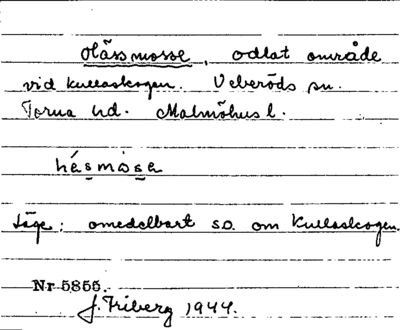 Hässmosse, odlat område
vid Kullaskogen. Veberöds sn.
Torna hd. Malmöhus l.
hésmòse
Läge: omedelbart s.o. om Kullaskogen.
Nr 5855.
J. Friberg 1944.